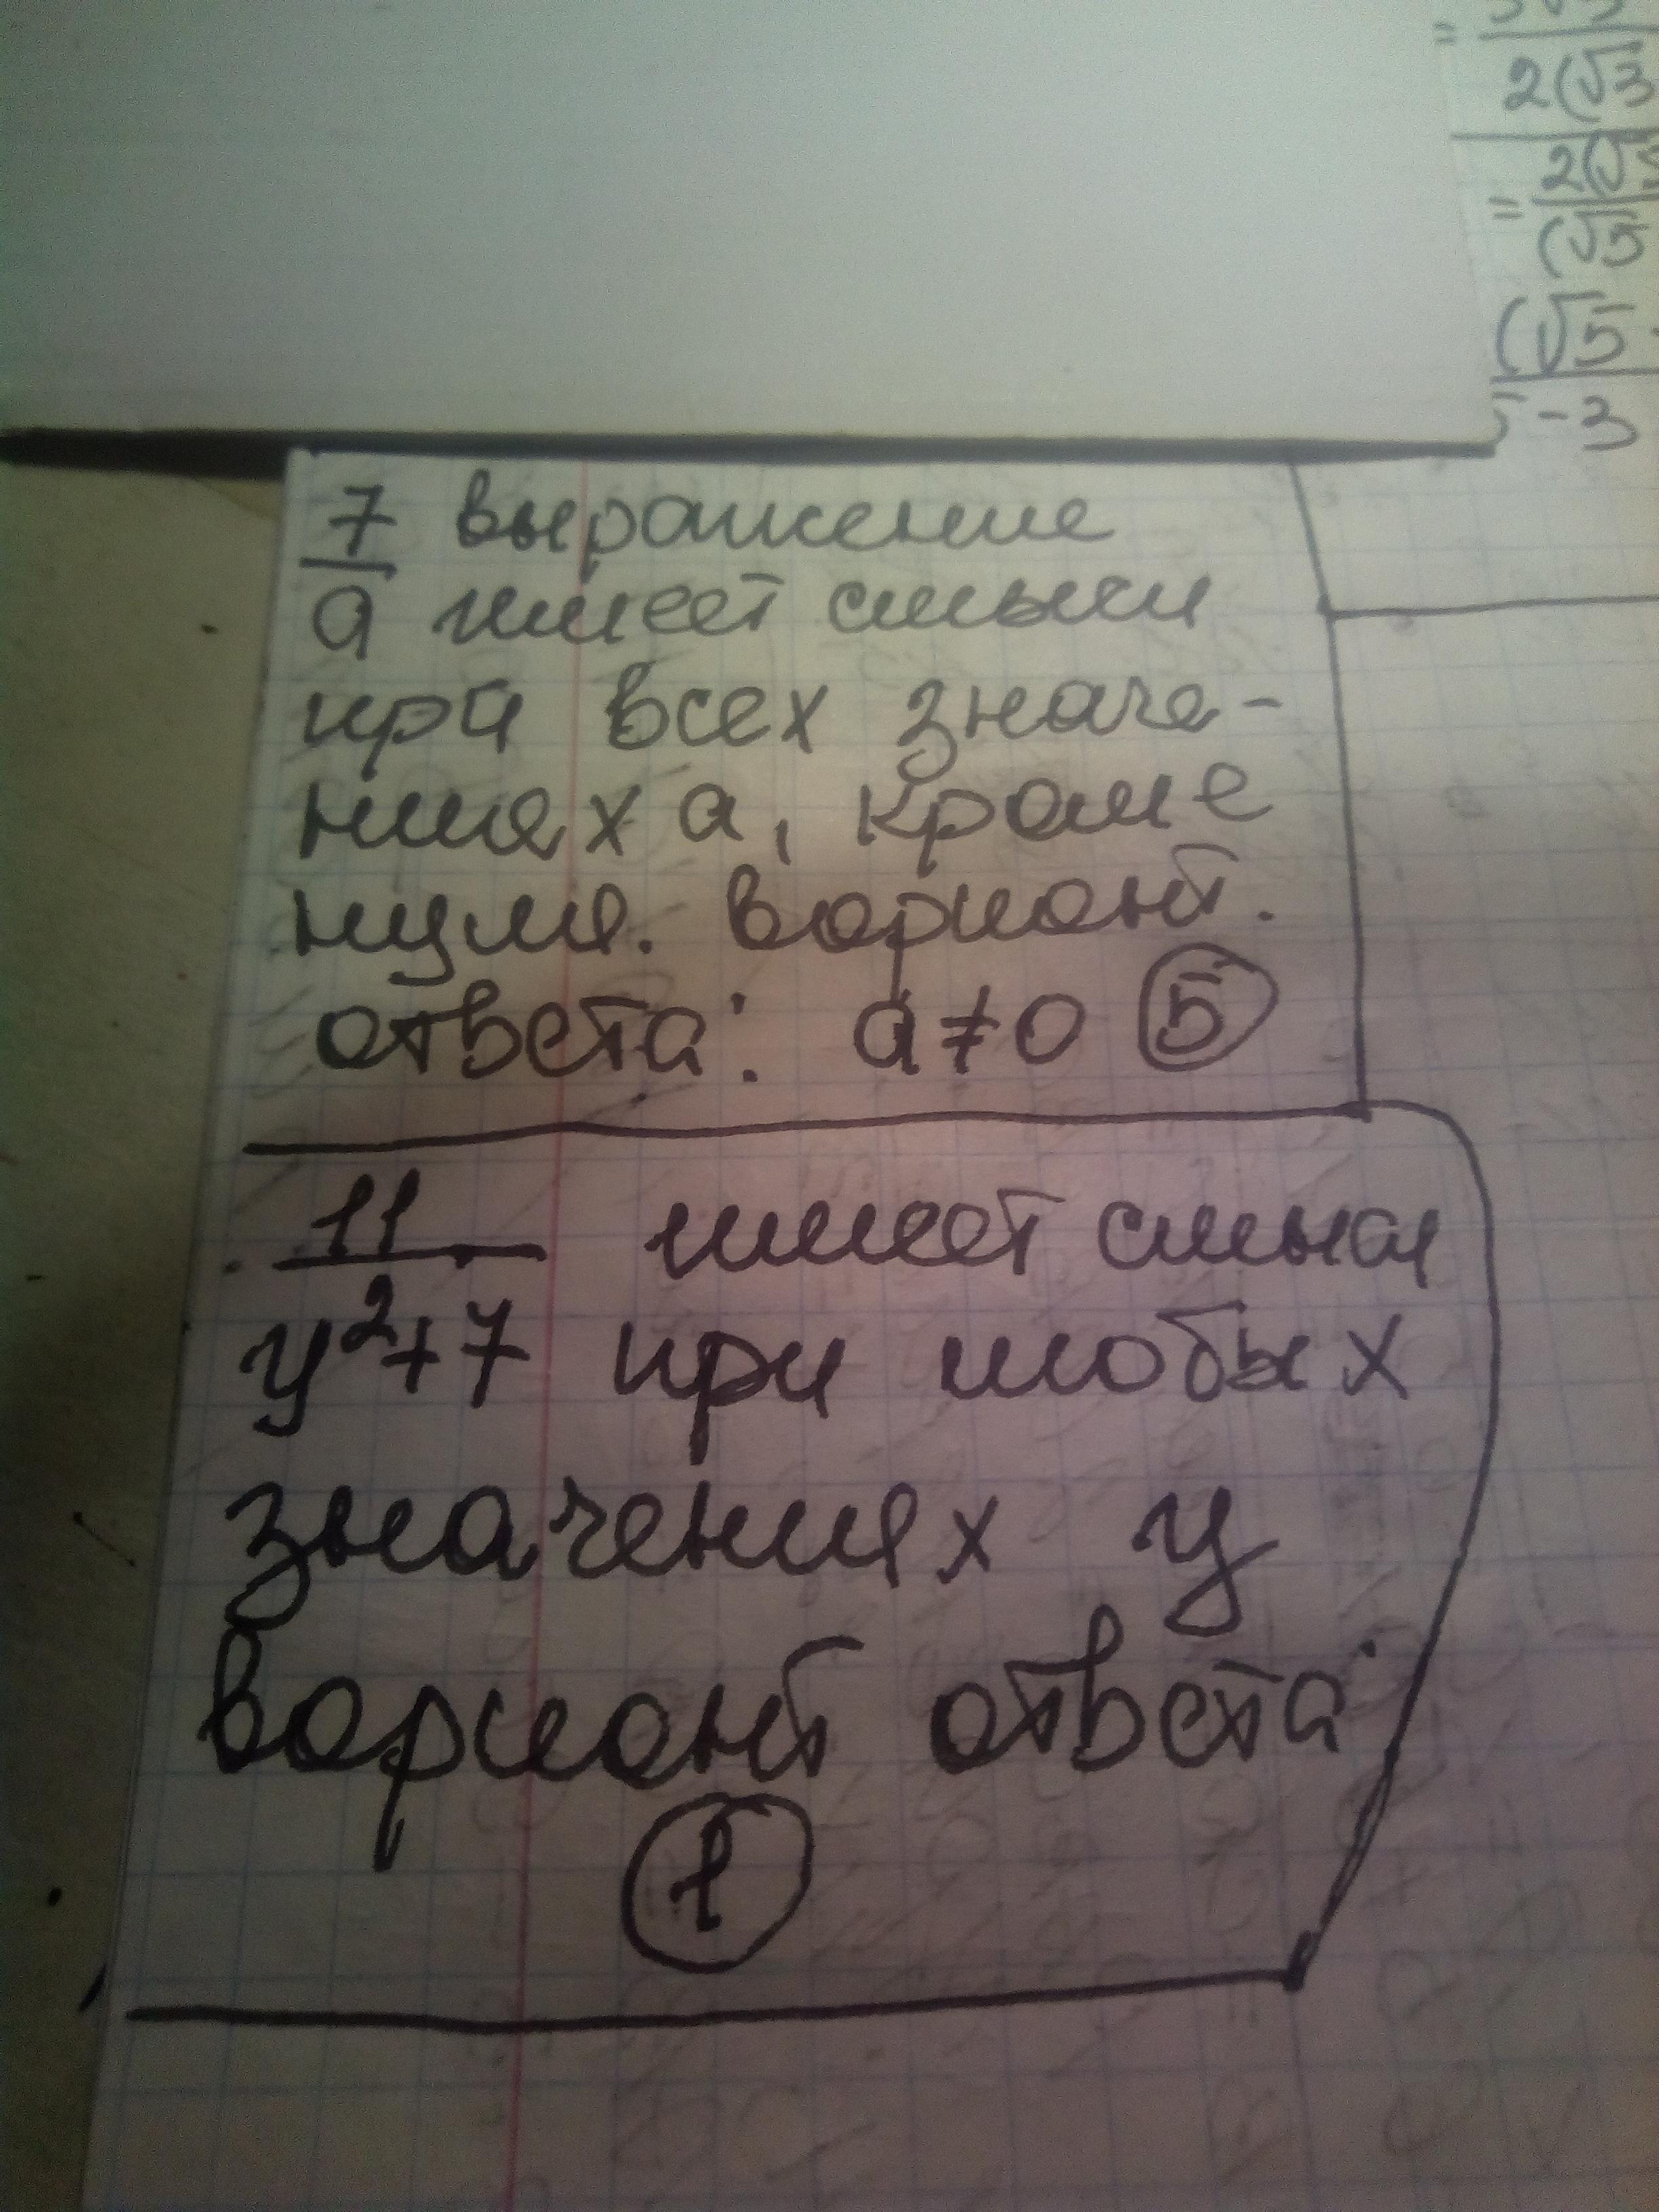 7 выражение
a имеет смысл
при всех значе-
ниях a, кроме
нуля. вариант.
ответа: a≠0 Б
11 имеет смысл
y²+7 при любых
значениях y
вариант ответа: